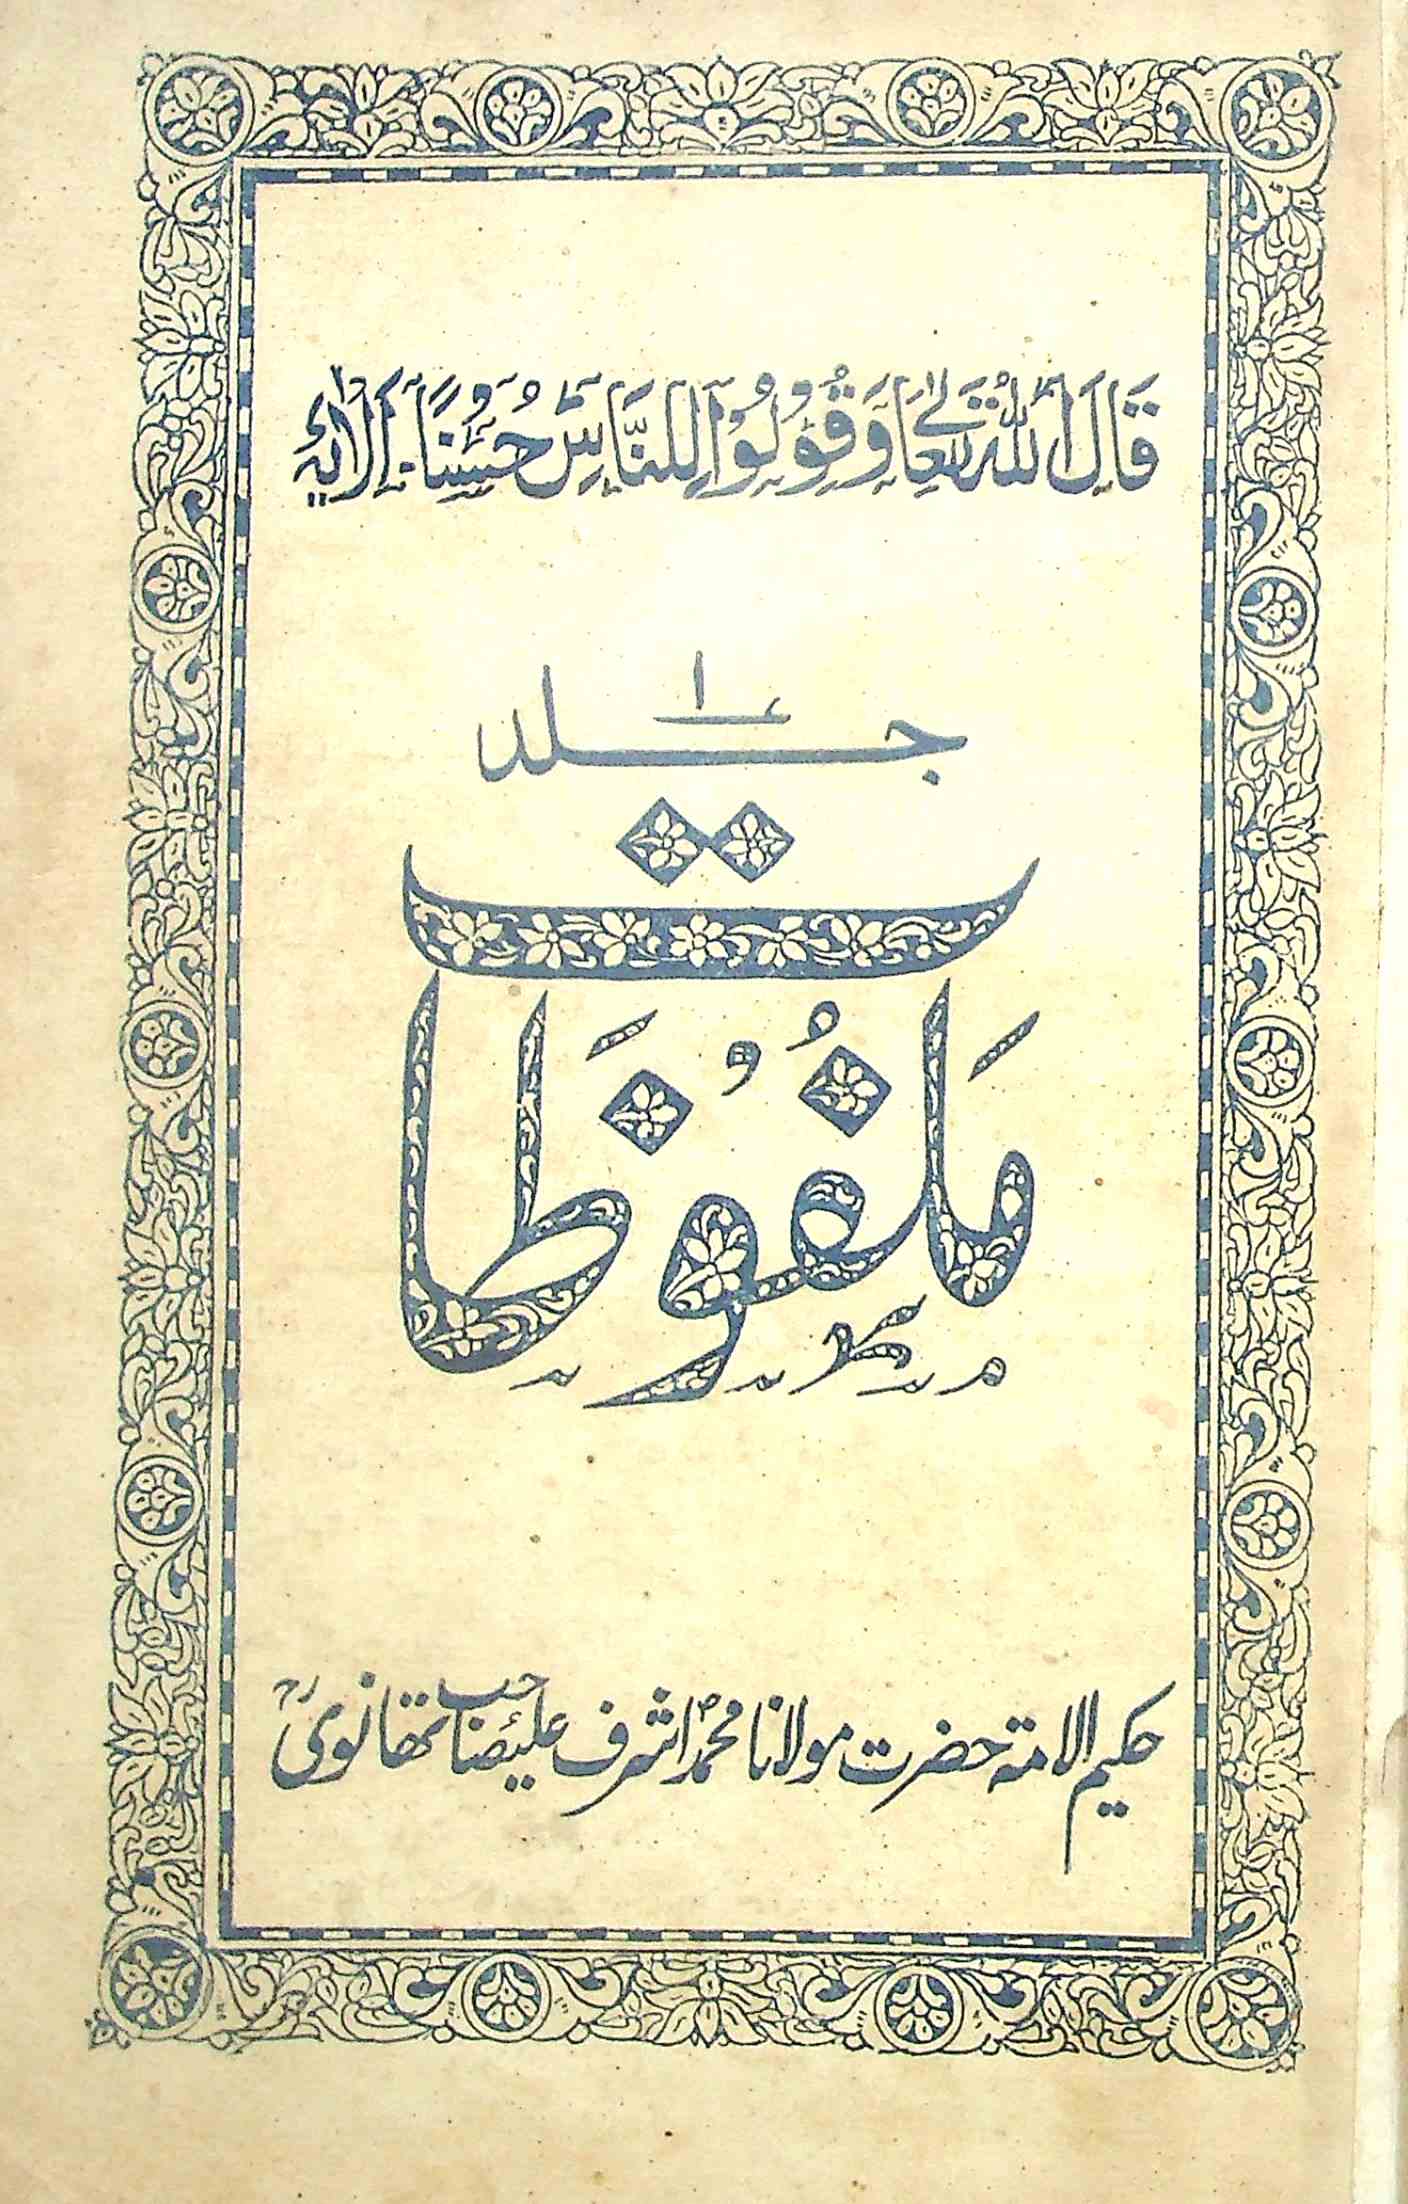 قَالَ اللّٰهُ تَعَالٰى وَقُوْلُوْا لِلنَّاسِ حُسْنًا۔ اَلْاٰیَہ
جلد ۱
مَلْفُوْظَات
حکیم الامۃ حضرت مولانا محمد اشرف علی صاحب تھانوی رح